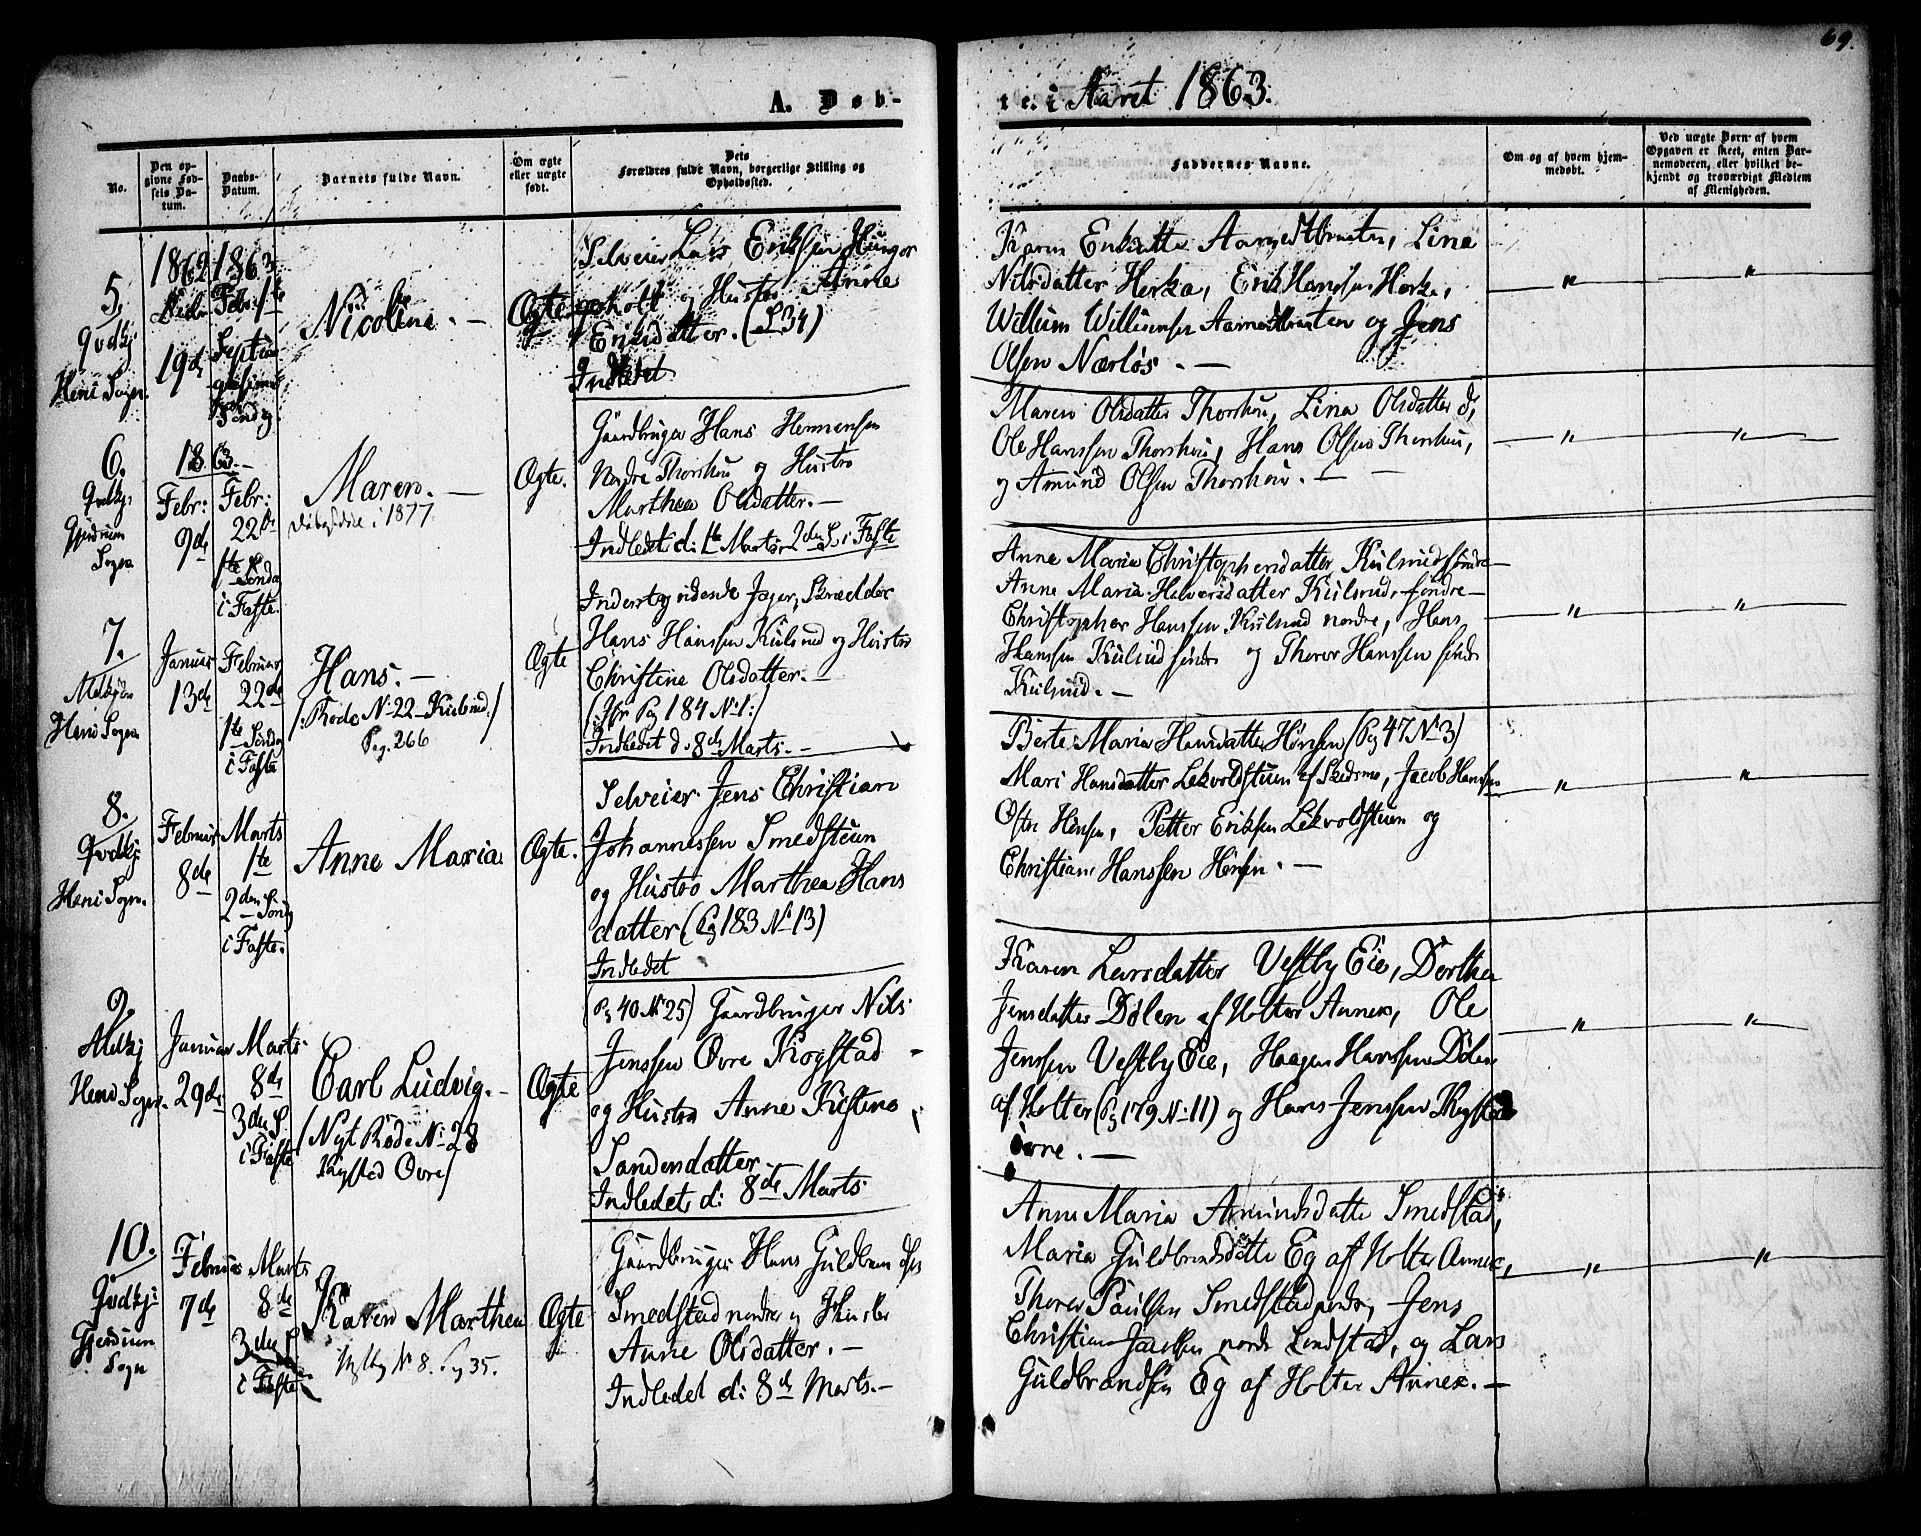 69.
A. Døb-
te. i Aaret 1863.
No.
Den op-
givne Fød-
sels Da-
tum.
Daabs-
Datum.
Barnets fulde Navn.
Om ægte
eller uægte
født.
Dets
Forældres fulde Navn, borgerlige Stilling og
Opholdssted.
Faddernes Navne.
Om og af hvem hjem-
medøbt.
Ved uægte Børn af hvem
Opgaven er skeet, enten Bar-
nemoderen, eller hvilket be-
kjendt og troværdigt Medlem
af Menigheden.
5.
Heni Sogn.
1862
19de
1863
Febr. 1ste
Septua
gesima
Søndg.
Nicoline. —
Ægte
Selveier Lars Eriksen Hungor
holt og Hustro Anne
Eriksdatter. (L34)
Indledet
Karen Aamodtbraaten, Lina
Nilsdatter Herka, Erik Hanssen Herka,
Willum Willumsen og Jens
Olsen Nærløs. —
"
"
6.
Gjerdrum
Sogn
1863. —
Febr:
9de
Febr:
22de
1ste Søndg
i Faste.
Maren. —
i 1877
Ægte.
Gaardbruger Hans Hermansen
Nordre Thorshou og Hustro
Marthea Olsdatter. —
Indledet d: 1te Marts 2den S. i Faste
Maren Olsdatter Thorshou, Lina Olsdatter d,
Ole Hanssen Thorshou, Hans Olsen Thorshou,
og Amund Olsen Thorshou. —
"
"
7.
Heni Sogn
Januar
13de
Februar
22de
1ste Søndg
i Faste
Hans. —
/: Rode N: 22 Kulsrud :/
Pag. 266
Ægte
ridende Jæger, Skrædder
Hans Hanssen Kulsrud og Hustro
Christine Olsdatter. —
(Pag 184 N: 1:)
Indledet d. 8de Marts. —
Anne Maria Christophersdatter Kulsrud søndre —
Anne Maria Halvorsdatter Kulsrud søndre —
Christopher Hanssen Kulsrud nordre, Hans
Hanssen Kulsrud søndr og Thorer Hanssen søndr
Kulsrud. —
"
"
8.
Heni Sogn.
Februar
8de
Marts
1te
2den Søndg
i Faste.
Anne Maria.
Ægte.
Selveier Jens Christian
Johannessen Smedstuen
og Hustro Marthea Hans
datter (Pg 183 N: 13)
Indledet
Berte Maria Hansdatter Hønsen (Pg 47 N: 3)
Mari Hansdatter Lekvoldstuen af Skedsmo, Jacob Hanssen
Petter Eriksen Lekvoldstuen og
Christian Hanssen Hønsen. —
"
"
9.
Heni Sogn.
Januar
29de
Marts
8de
3die S.
i Faste
Carl Ludvig. —
/ Nyt Rode N: 28
Kogstad Øvre /
Ægte
(Pg 40 N: 25) Gaardbruger Nils
Jenssen Øvre Kogstad
og Hustro Anne Kirstine
Indledet d: 8de Marts.
Karen Larsdatter Vestby Eie, Dorthea
Jensdatter Dølen af Holter Annex, Ole
Jenssen Vestby Eie, Haagen Hanssen Dølen
af Holter (Pg 179 N: 11) og Hans Jenssen Kogstad
øvre. —
"
"
10.
Gjerdrum
Sogn
Februar
7de
Marts
8de
3die S.
i Faste
Karen Marthea
N: 8. Pg 35.
Ægte
Gaardbruger Hans Guldbrandsen
Smedstad nordre og Hustro
Anne Olsdatter. —
Indledet d: 8de Marts. —
Anne Maria Amundsdatter Smedstad,
Maria Guldbrandsdatter Eg af Holter Annex,
Thorer Paulsen Smedstad nordr, Jens
Christian Jacobsen nordr Lindstad, og Lars
Guldbrandsen Eg af Holter Annex. —
"
"